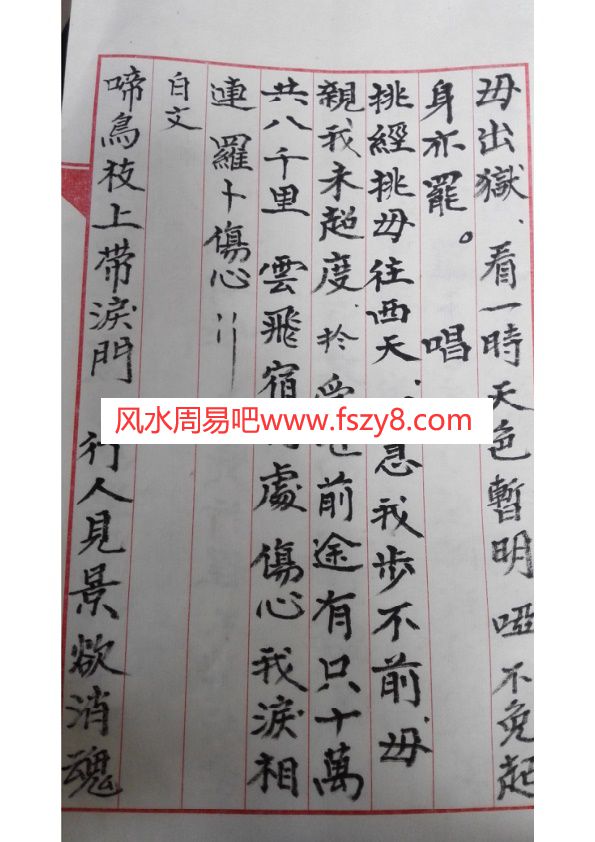 毋出獄、看一時天色暫明啞不免起
身亦罷。 唱
挑經挑毋往西天、息我步不前毋
親我未超度、於前途有只十萬
共八千里 雲飛宿處 傷心我淚相
連 羅卜傷心
白文
啼鳥枝上带淚門 行人見景欲消魂
风水周易吧www.fszy8.com